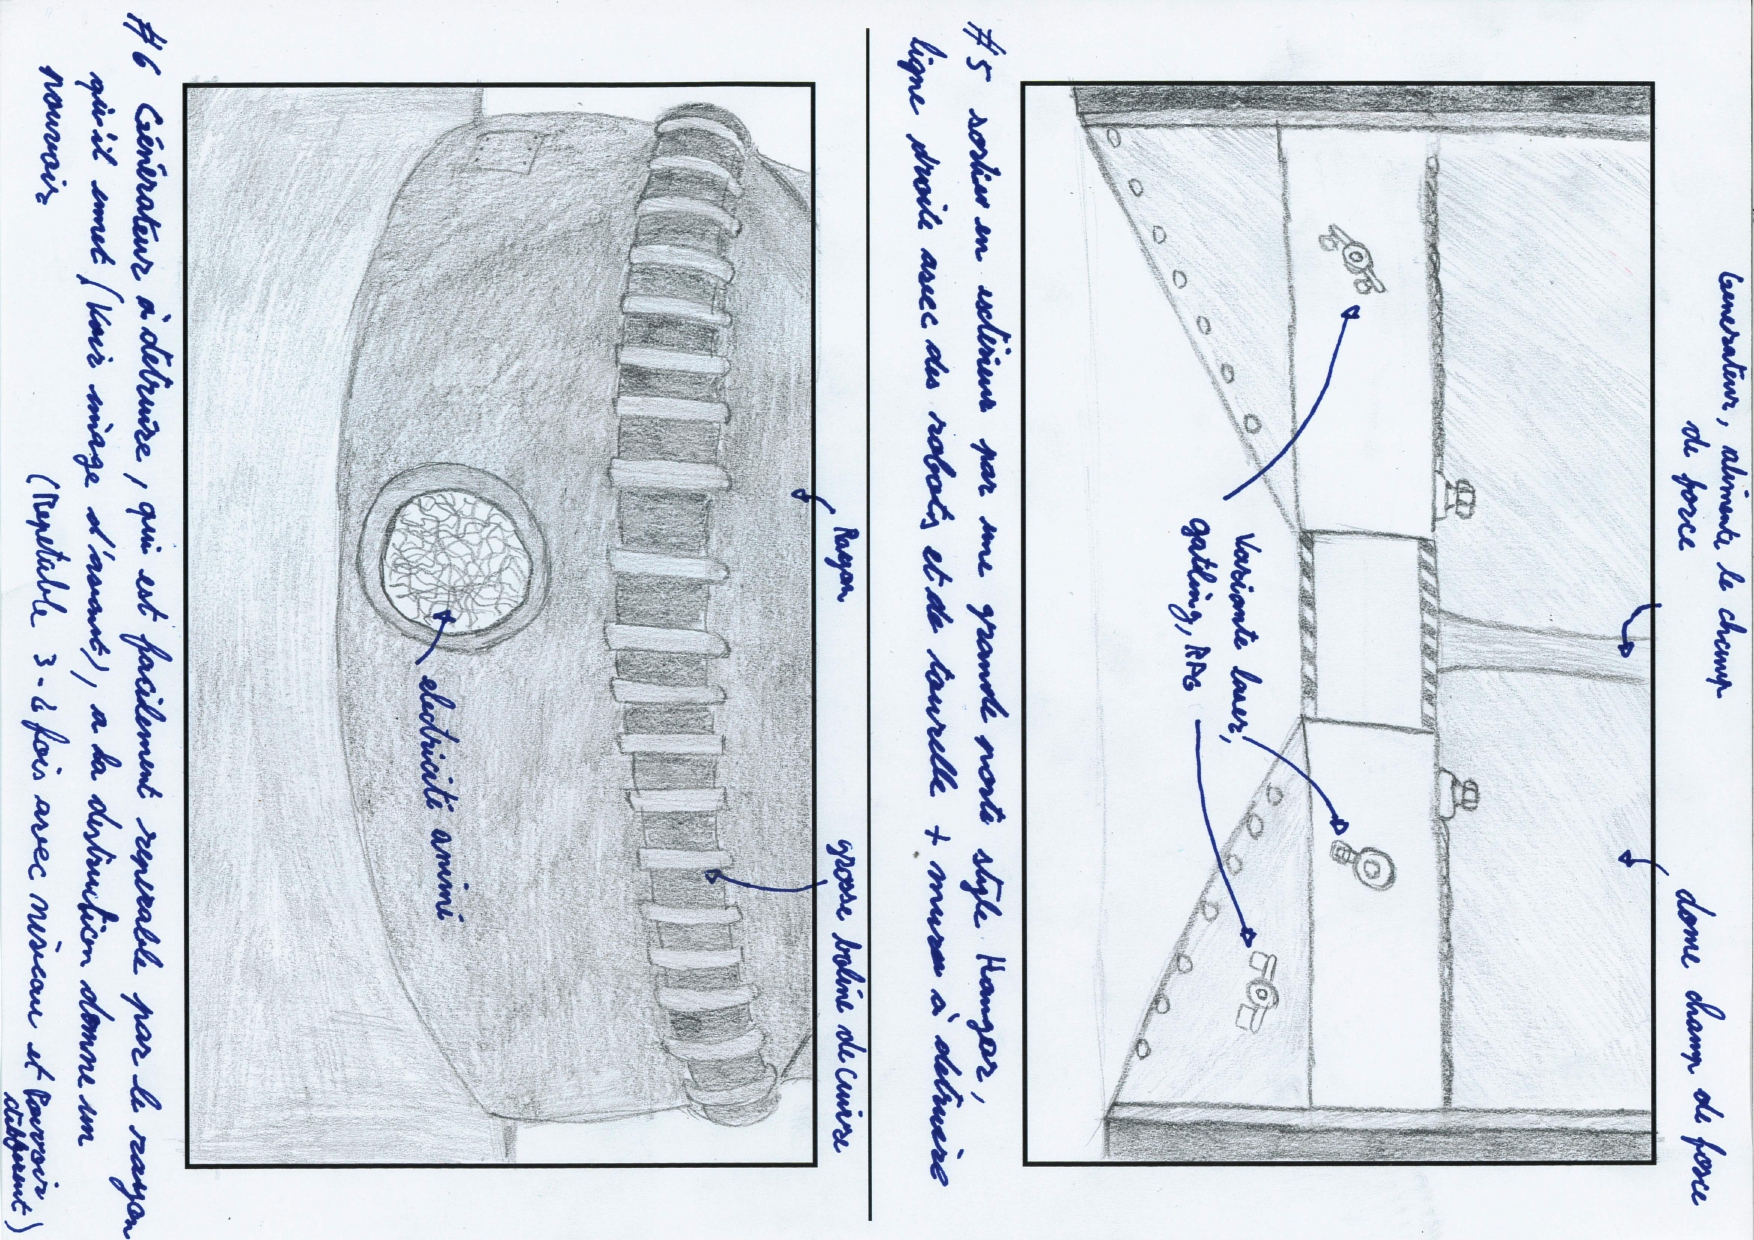 Generateur, alimente le champ
de force
dome champ de force
Variante laser,
gatling, RPG
#5 sortier en extérieur par une grande porte style Hangar,
ligne droite avec des robots et de tourelle + murs à détruire
Rayon
grosse bobine de cuivre
electricité animé
#6 Générateur à détruire, qui est facilement reperable par le rayon
qu'il emet (Voir image d'avant), a la destruction donne un
pouvoir
(Repetable 3-4 fois avec niveau et Pouvoir
different)